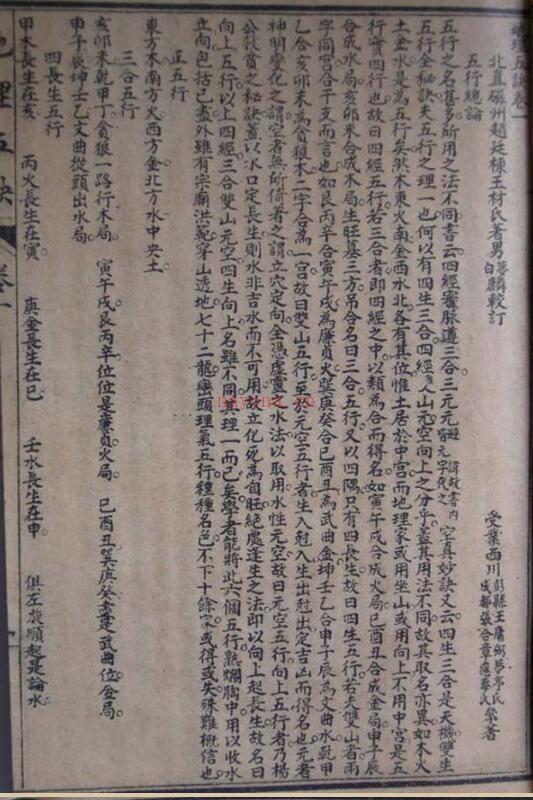 地理五訣卷一
北直磁州趙廷棟玉材氏著男
夢麟
白麟
較訂
受業西川
彭縣王庸弼夢亭氏
成都張含章
氏
著
五行總論
五行之名甚多所用之法不同書云四經審脉遵三合三元元
避諱故書內
皆元字代之
空真妙訣又云四生三合是天機雙生
五行全秘訣夫五行之理一也何以有四生三合四經
山元空向上之分乎蓋其用法不同故其取名亦異如木火
土金水是為五行矣然木東火南金西水北各有其位惟土居於中宮而地理家或用坐山或用向上不用中宮是五
行實四行也故曰四經五行若三合者即四經之中以類為合而得名如寅午戌合成火局巳酉丑合成金局申子辰
合成水局亥卯未合成木局生旺墓三方吊合名曰三合五行又以四隅只有四長生故曰四生五行若夫雙山者兩
字同宮合干支而言也如艮丙辛合寅午戌為廉貞火巽庚癸合巳酉丑為武曲金坤壬乙合申子辰為文曲水乾甲
乙合亥卯未為貪狼木二字合為一宮故曰雙山五行至於元空五行者生入尅入生出尅出定吉凶而得名也元者
神明變化之謂空者無所倚者之謂立穴定向全憑虛靈之水法以取用水性元空故曰元空五行向上五行者乃楊
公救貧之秘訣蓋以水口定長生則水非吉水而不可用故立化死為自旺絕處逢生之法即以向上起長生故名曰
向上五行以上四經三合雙山元空四生向上名雖不同其理一而已矣學者能將此六個五行熟爛胸中用以收水
立向包括已盡外雖有宗廟洪範穿山透地七十二龍巒頭理氣五行種種名色不下十餘家或得或失殊難概信也
正五行
東方木南方火西方金北方水中央土
三合五行
亥卯未乾甲丁貪狼一路行木局 寅午戌艮丙辛位位是廉貞火局 巳酉丑巽庚癸盡是武曲位金局
申子辰坤壬乙文曲從頭出水局
四長生五行
甲木長生在亥 丙火長生在寅 庚金長生在巳 壬水長生在申 俱左旋順起是論水
地理五訣
卷一